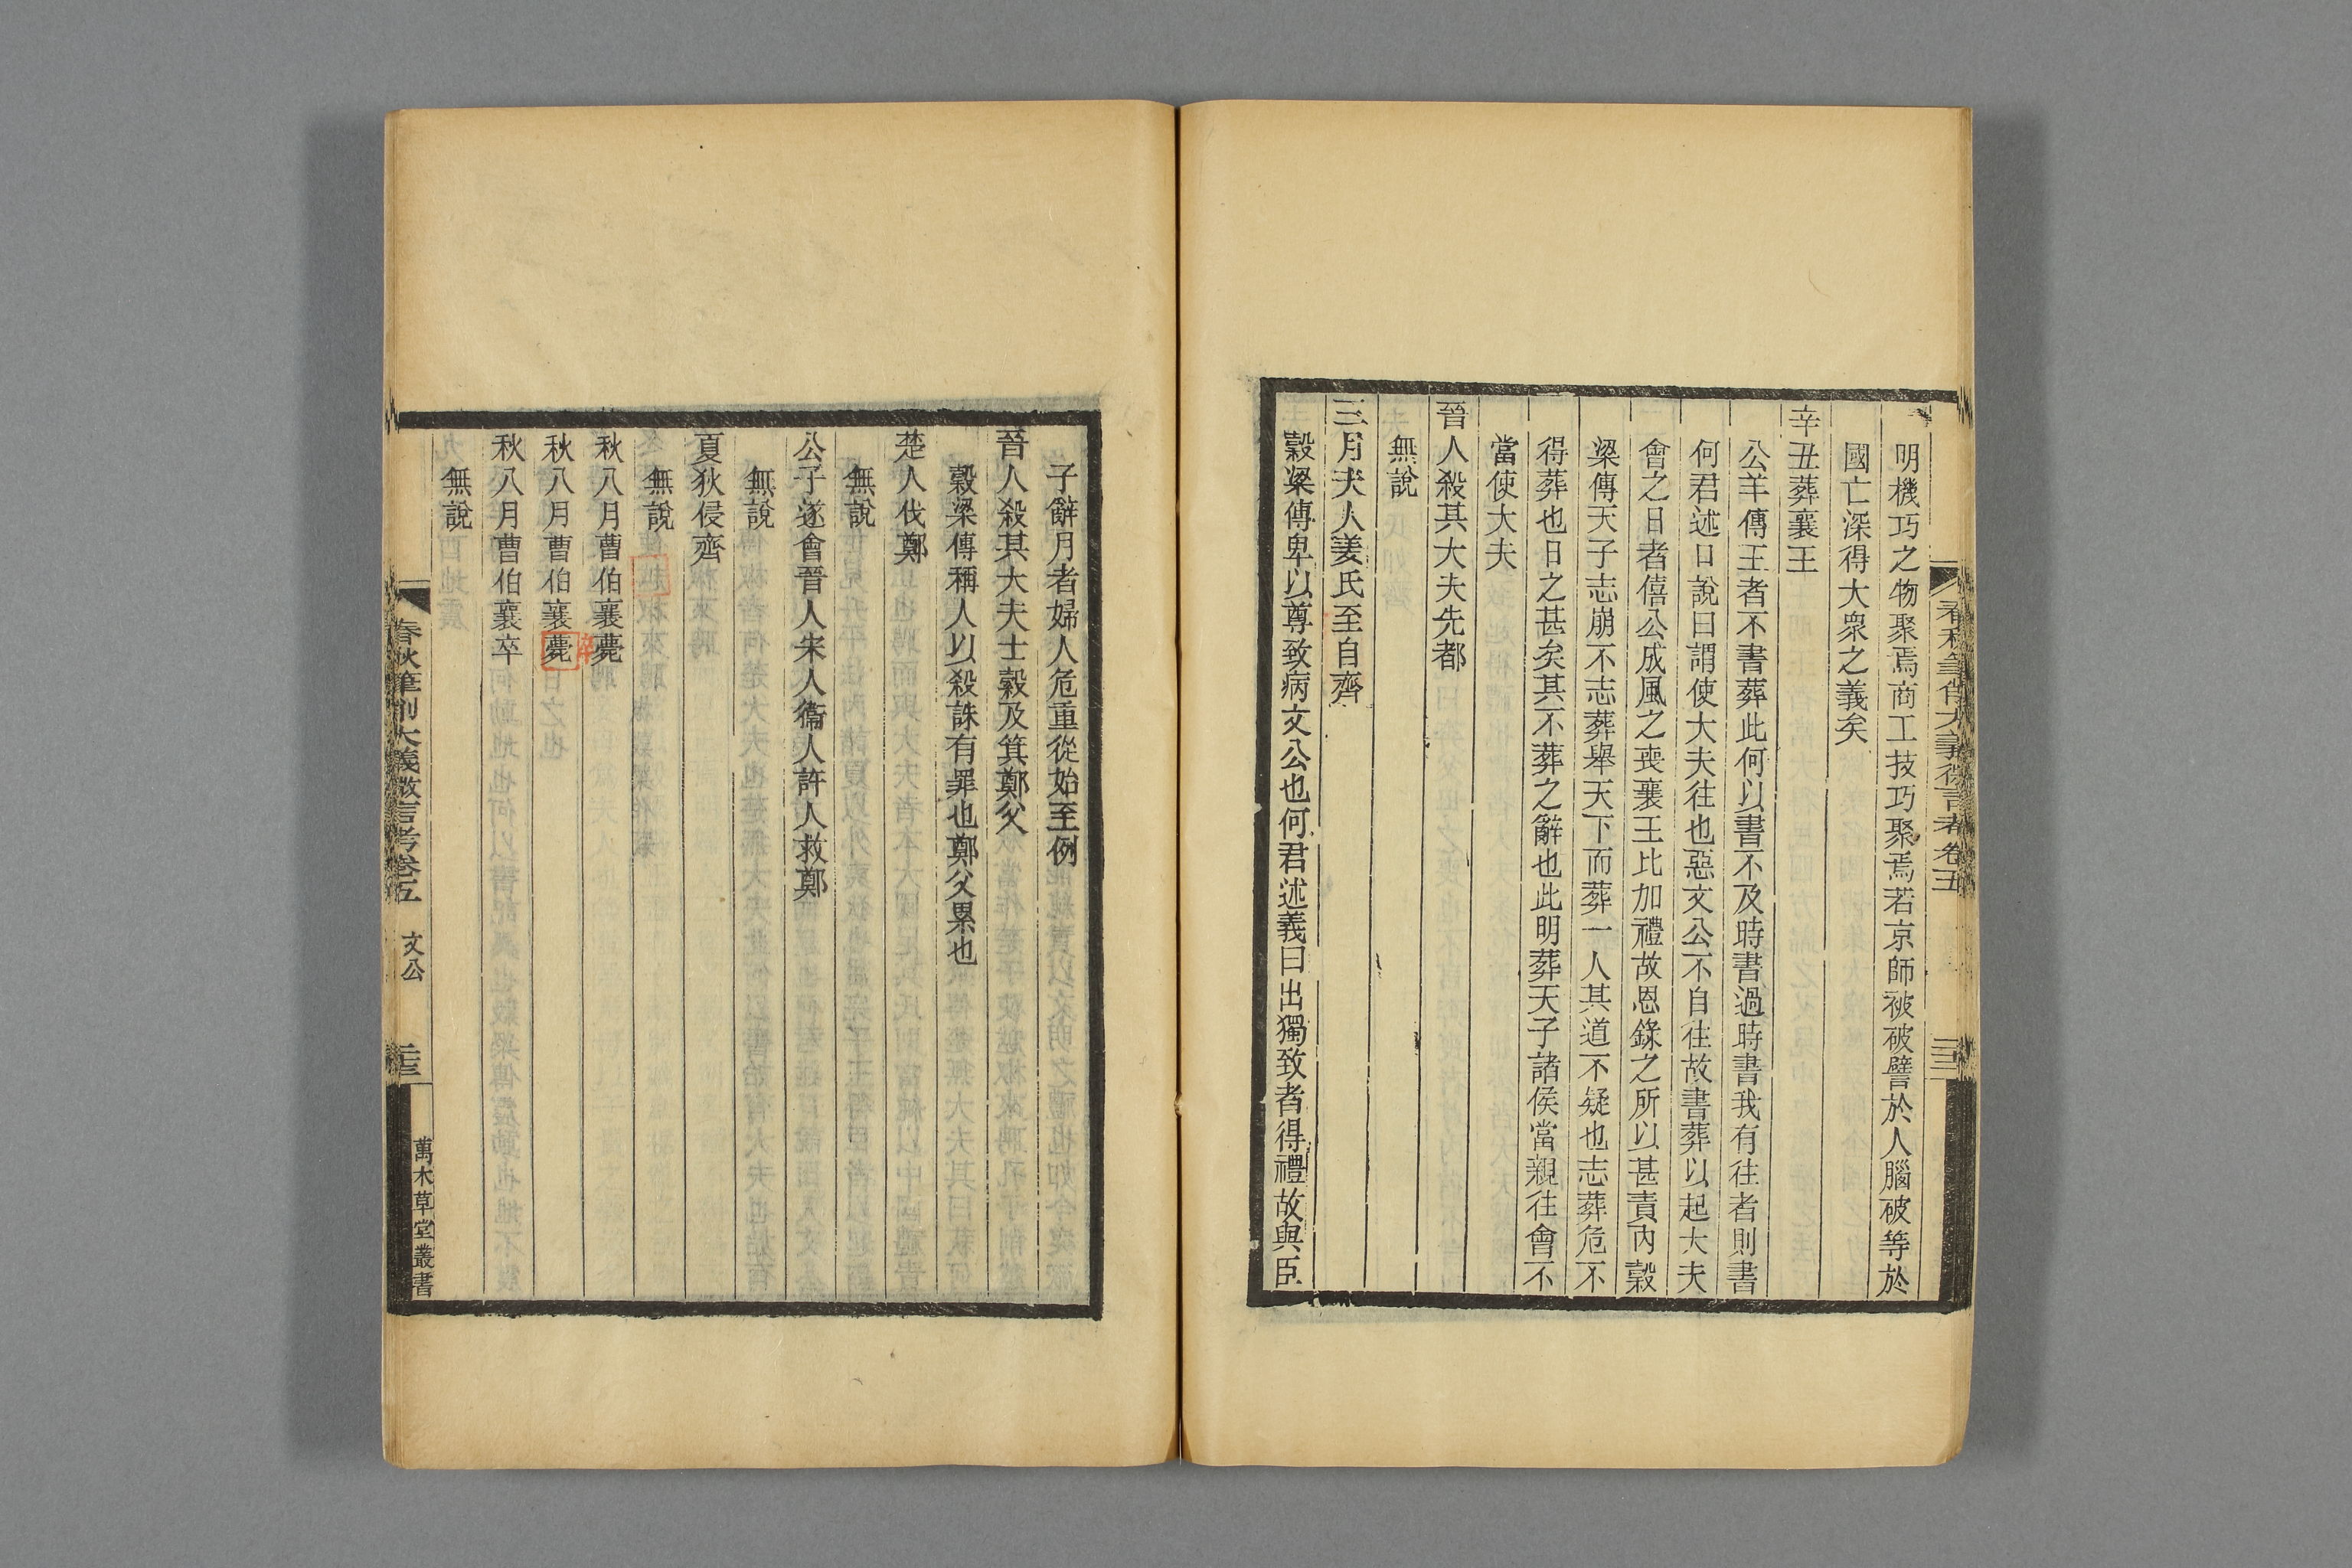 明機巧之物聚焉商工技巧聚焉若京師被破譬於人腦破等於
國亡深得大衆之義矣
辛丑葬襄王
公羊傳王者不書葬此何以書不及時書過時書我有往者則書
何君述口說曰謂使大夫往也惡文公不自往故書葬以起大夫
會之日者僖公成風之喪襄王比加禮故恩錄之所以甚責內穀
梁傳天子志崩不志葬舉天下而葬一人其道不疑也志葬危不
得葬也日之甚矣其不葬之辭也此明葬天子諸侯當親往會不
當使大夫
晉人殺其大夫先都
無說
三月夫人姜氏至自齊
穀梁傳卑以尊致病文公也何君述義曰出獨致者得禮故與臣
春秋筆削大義微言考卷五
子辭月者婦人危重從始至例
晉人殺其大夫士穀及箕鄭父
穀梁傳稱人以殺誅有罪也鄭父累也
楚人伐鄭
無說
公子遂會晉人宋人衞人許人救鄭
無說
夏狄侵齊
無說
秋八月曹伯襄薨
秋八月曹伯襄薨
卒
秋八月曹伯襄卒
無說
春秋筆削大義微言考卷五 文公
萬木草堂叢書